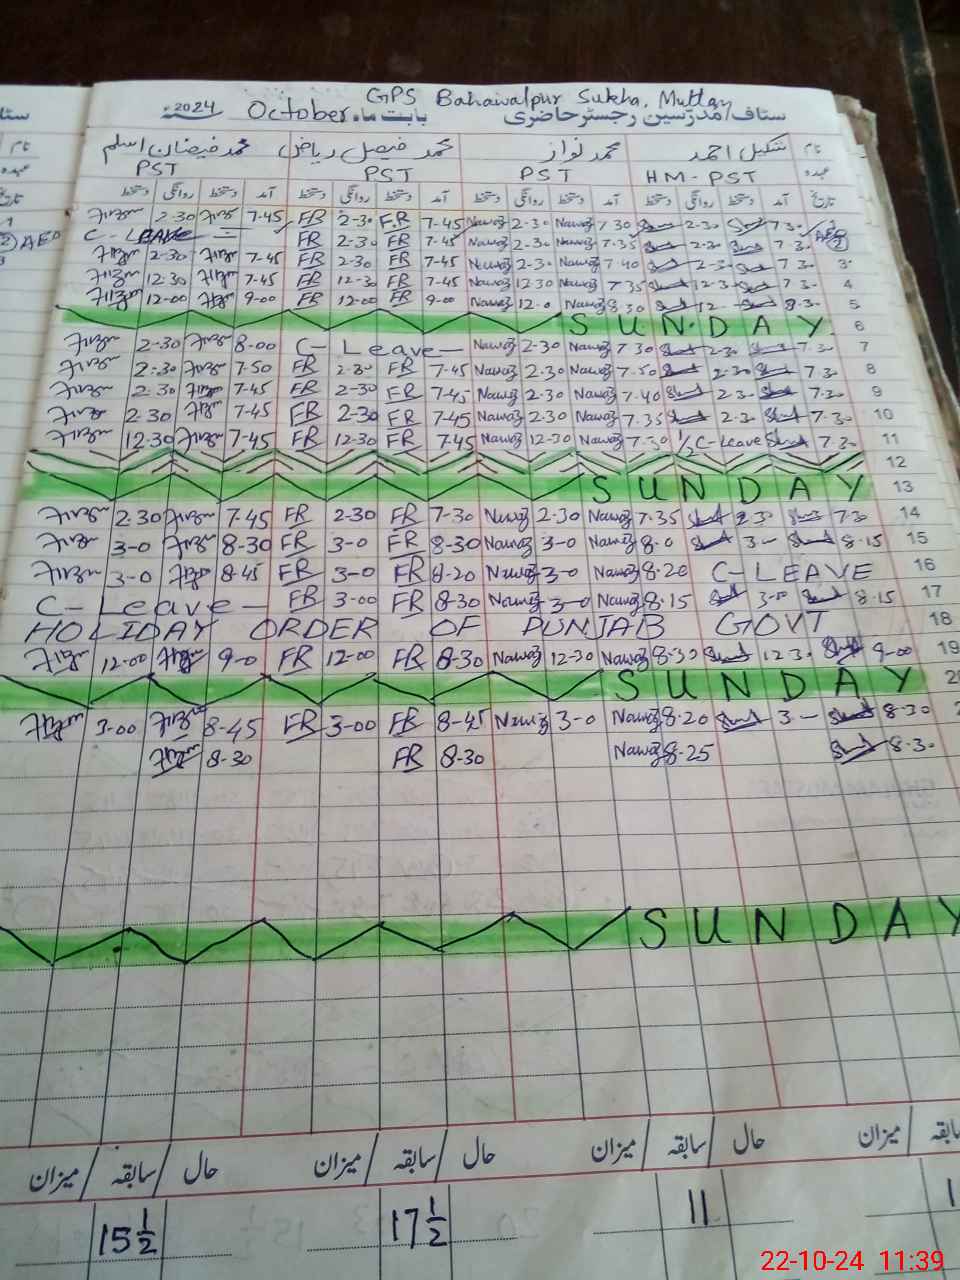 GPS Bahawalpur Sukha, Multan
ستاف/مدرسین رجسٹر حاضری بابت ماہ October 2024ء
نام شکیل احمد محمد نواز محمد فیصل ریاض محمد فیضان اسلم
عہدہ HM-PST PST PST PST
تاریخ آمد دستخط روانگی دستخط آمد دستخط روانگی دستخط آمد دستخط روانگی دستخط آمد دستخط روانگی دستخط
2-30 7-45 FR 2-30 F.R 7-45 Nawaz 2-30 Nawaz 7 30 2-30 7 3-
② AEO C-LEAVE FR 2-30 FR 7-45 Nawaz 2-30 Nawaz 7-35 2-30 7. 3- AEO ②
2-30 7-45 FR 2-30 FR 7-45 Nawaz 2-30 Nawaz 7 40 2-3- 7 3- 3
12-30 7-45 FR 12-30 FR 7-45 Nawaz 12 30 Nawaz 7 35 12-3- 7 3- 4
12-00 9-00 FR 12-00 FR 9-00 Nawaz 12-0 Nawaz 8 30 12- 8-3- 5
SUNDAY 6
2-30 8-00 C-Leave- Nawaz 2-30 Nawaz 7 30 2-30 7-3- 7
2-30 7-50 FR 2-30 FR 7-45 Nawaz 2-30 Nawaz 7-50 2-30 7.3- 8
2-30 7-45 FR 2-30 FR 7-45 Nawaz 2-30 Nawaz 7-40 2-3- 7.30 9
2-30 7-45 FR 2-30 FR 7-45 Nawaz 2-30 Nawaz 7.35 2-3- 7.30 10
12-30 7-45 FR 12-30 FR 7-45 Nawaz 12-30 Nawaz 7-30 1/2 C-Leave 7.30 11
12
SUNDAY 13
2-30 7-45 FR 2-30 FR 7-30 Nawaz 2-30 Nawaz 7-35 2-30 7.30 14
3-0 8-30 FR 3-0 FR 8-30 Nawaz 3-0 Nawaz 8-0 3- 8-15 15
3-0 8-45 FR 3-0 FR 8-20 Nawaz 3-0 Nawaz 8-20 C-LEAVE 16
C-Leave- FR 3-00 FR 8-30 Nawaz 3-0 Nawaz 8-15 3-0 8-15 17
HOLIDAY ORDER OF PUNJAB GOVT 18
12-00 9-0 FR 12-00 FR 8-30 Nawaz 12-30 Nawaz 8-30 12 3- 9-00 19
SUNDAY
3-00 8-45 FR 3-00 FR 8-45 Nawaz 3-0 Nawaz 8-20 3- 8-30
8-30 FR 8-30 Nawaz 8-25 8-3-
SUNDAY
سابقہ میزان حال سابقہ میزان حال سابقہ میزان حال سابقہ میزان
11 17 1/2 15 1/2
22-10-24 11:39